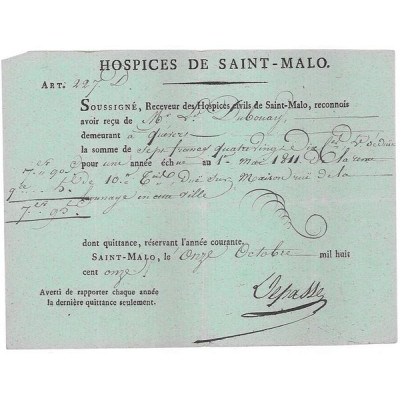 HOSPICES DE SAINT-MALO.
ART. 227 D.
SOUSSIGNÉ, Receveur des Hospices civils de Saint-Malo, reconnois
avoir reçu de Mr. Dubouays
demeurant à
la somme de Sept francs quatre vingt dix
pour une année échue au 1er mai 1811 De la rente
De 10 Due sur Maison rue de la
en cette ville
dont quittance, réservant l'année courante.
SAINT-MALO, le Onze Octobre mil huit
cent onze.
Averti de rapporter chaque année
la dernière quittance seulement.
Depasse